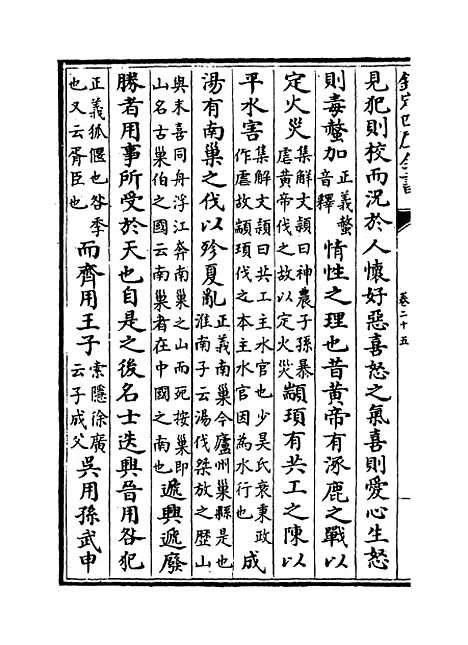 欽定四庫全書
卷二十五
見犯則校而況於人懷好惡喜怒之氣喜則愛心生怒
則毒螫加正義螫音釋情性之理也昔黃帝有涿鹿之戰以
定火災集解文穎曰神農子孫暴虐黃帝伐之故以定火災顓頊有共工之陳以
平水害集解文穎曰共工主水官也少昊氏衰秉政作虐故顓頊伐之本主水官因為水行也成
湯有南巢之伐以殄夏亂正義南巢今廬州巢縣是也淮南子云湯伐桀放之歷山
與末喜同舟浮江奔南巢之山而死按巢即山名古巢伯之國云南巢者在中國之南也遞興遞廢
勝者用事所受於天也自是之後名士迭興晉用咎犯
正義狐偃也咎季也又云胥臣也而齊用王子索隱徐廣云子成父吳用孫武申